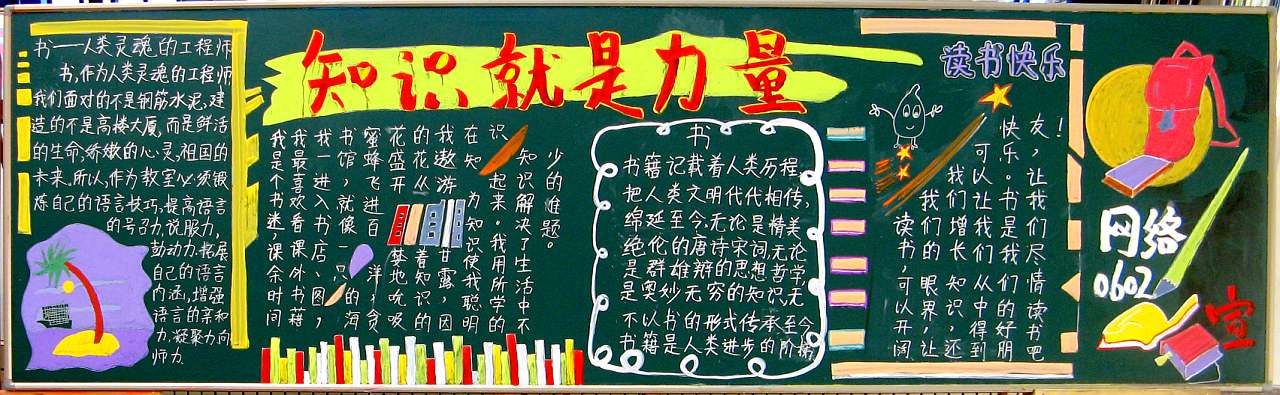 书——人类灵魂的工程师
书,作为人类灵魂的工程师
我们面对的不是钢筋水泥,建
造的不是高楼大厦,而是鲜活
的生命,娇嫩的心灵,祖国的
未来,所以,作为教室必须锻
炼自己的语言技巧,提高语言
的号召力,说服力,
鼓动力,拓展
自己的语言
内涵,增强
语言的亲和
力,凝聚力,向
师力.
知识就是力量
我是个书迷,课余时间
我最喜欢看课外书籍
我一进入书店、图,
书馆,就像一只的海
蜜蜂飞进百洋,贪
花盛开婪地吮吸
的花丛着知识的
我遨游甘露,因
在知为知识使我聪明
识起来。我用所学的
知识解决了生活中不
少的难题。
书
书籍记载着人类历程,
把人类文明代代相传,
绵延至今,无论是精美
绝伦的唐诗宋词,无论
是群雄辩的思想哲学
是奥妙无穷的知识无
不以书的形式传承至今
书籍是人类进步的阶梯
读书快乐
读书,可以开阔
我们的眼界,让
我们增长知识,还
可以让我们从中得到
快乐。书是我们的好朋
友,让我们尽情读书吧!
网络
0602
宣